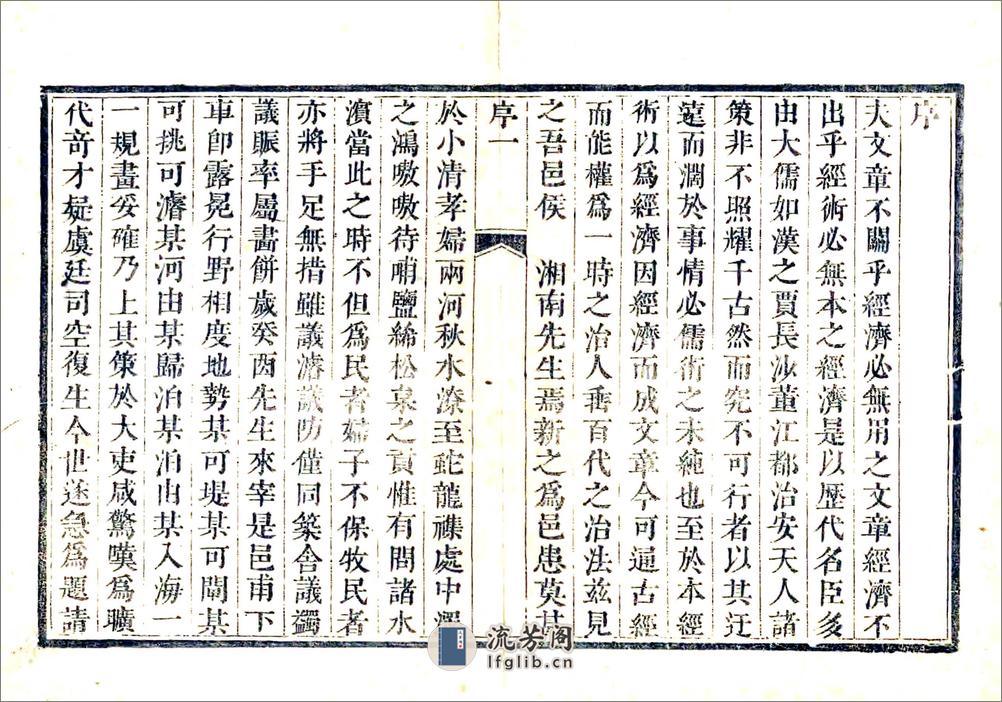 序
夫文章不關乎經濟必無用之文章經濟不
出乎經術必無本之經濟是以歷代名臣多
由大儒如漢之賈長沙董江都治安天人諸
策非不照耀千古然而究不可行者以其迂
遠而濶於事情必儒術之未純也至於本經
術以爲經濟因經濟而成文章今可通古經
而能權爲一時之治人垂百代之治法茲見
之吾邑侯 湘南先生焉新之爲邑患莫甚
序一
於小清孝婦兩河秋水潦至蛇龍襍處中澤
之鴻嗷嗷待哺鹽絺松泉之貢惟有問諸水
濵當此之時不但爲民者婦子不保牧民者
亦將手足無措雖議濬議防僅同築舍議蠲
議賑率屬畫餅歲癸酉先生來宰是邑甫下
車卽露冕行野相度地勢某可堤某可閘某
可挑可濬某河由某歸泊某泊由某入海一
一規畫妥確乃上其策於大吏咸驚嘆爲曠
代奇才疑虞廷司空復生今世遂急爲題請
流芳阁
lfglib.cn